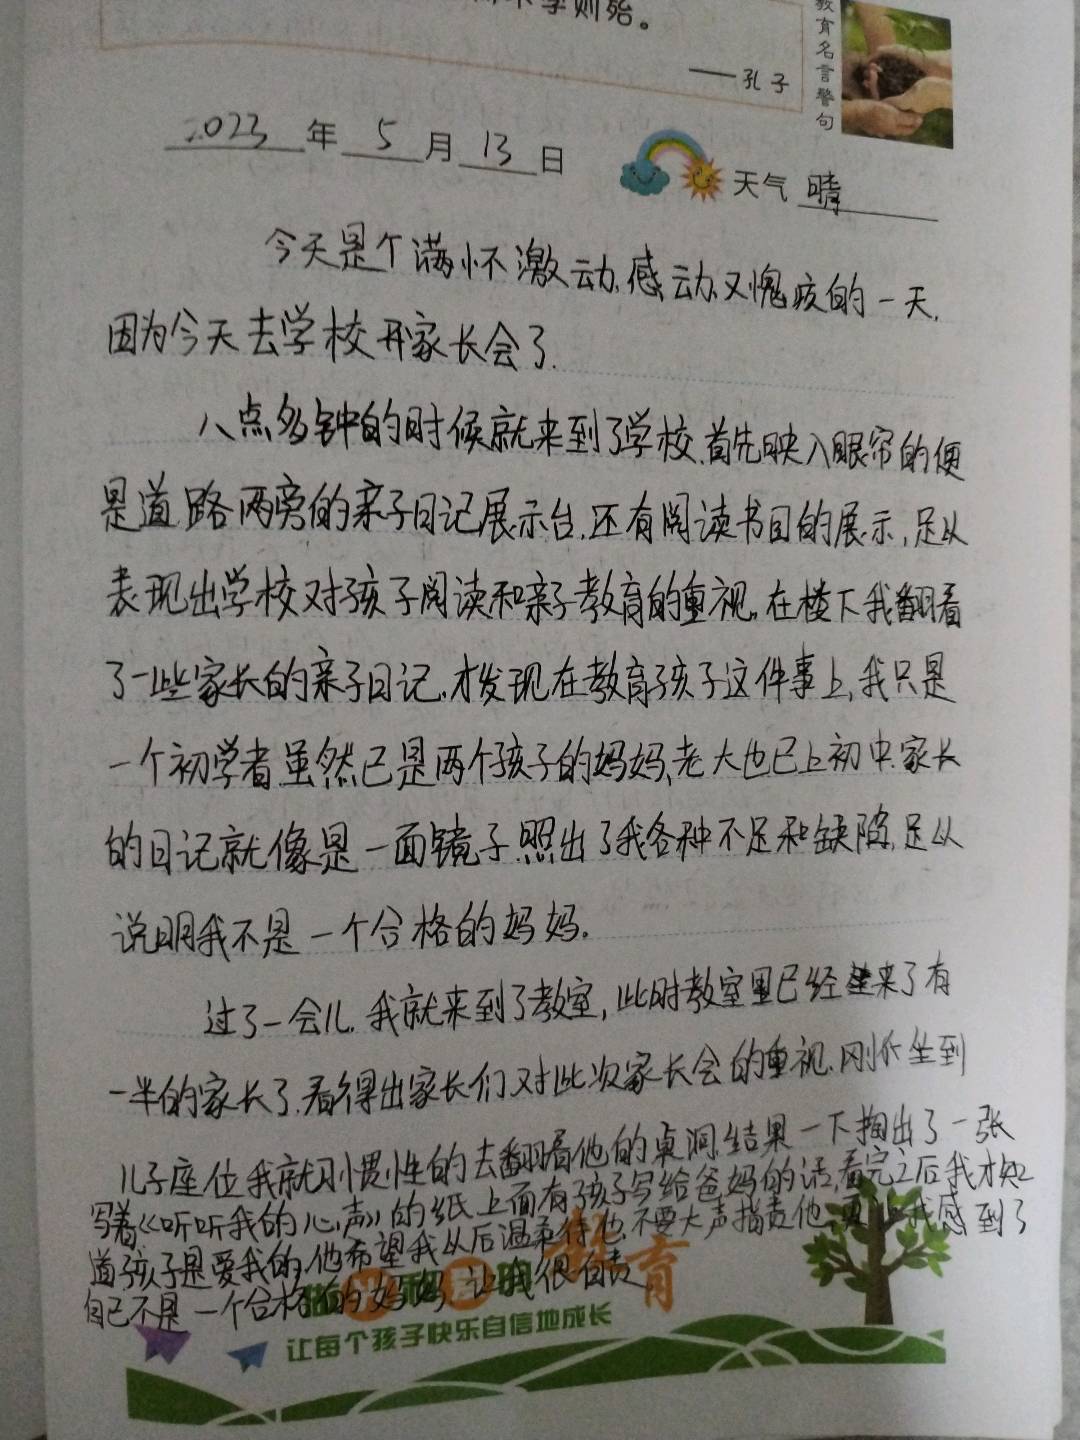 学则殆。
——孔子
教育名言警句
2023年5月13日
天气 晴
今天是个满怀激动、感动、又愧疚的一天,
因为今天去学校开家长会了.
八点多钟的时候就来到了学校.首先映入眼帘的便
是道路两旁的亲子日记展示台,还有阅读书目的展示,足以
表现出学校对孩子阅读和亲子教育的重视。在楼下我翻看
了一些家长的亲子日记,才发现在教育孩子这件事上,我只是
一个初学者虽然已是两个孩子的妈妈,老大也已上初中.家长
的日记就像是一面镜子照出了我各种不足和缺陷,足以
说明我不是一个合格的妈妈.
过了一会儿.我就来到了教室,此时教室里已经来了有
一半的家长了.看得出家长们对此次家长会的重视.刚坐到
儿子座位我就习惯性的去翻看他的桌洞,结果一下掏出了一张
写着《听听我的心声》的纸上面有孩子写给爸妈的话,看完之后我才知
道孩子是爱我的,他希望我以后温柔待他,不要大声指责他,我感到了
自己不是一个合格的妈妈 让我很自责
教育
让每个孩子快乐自信地成长